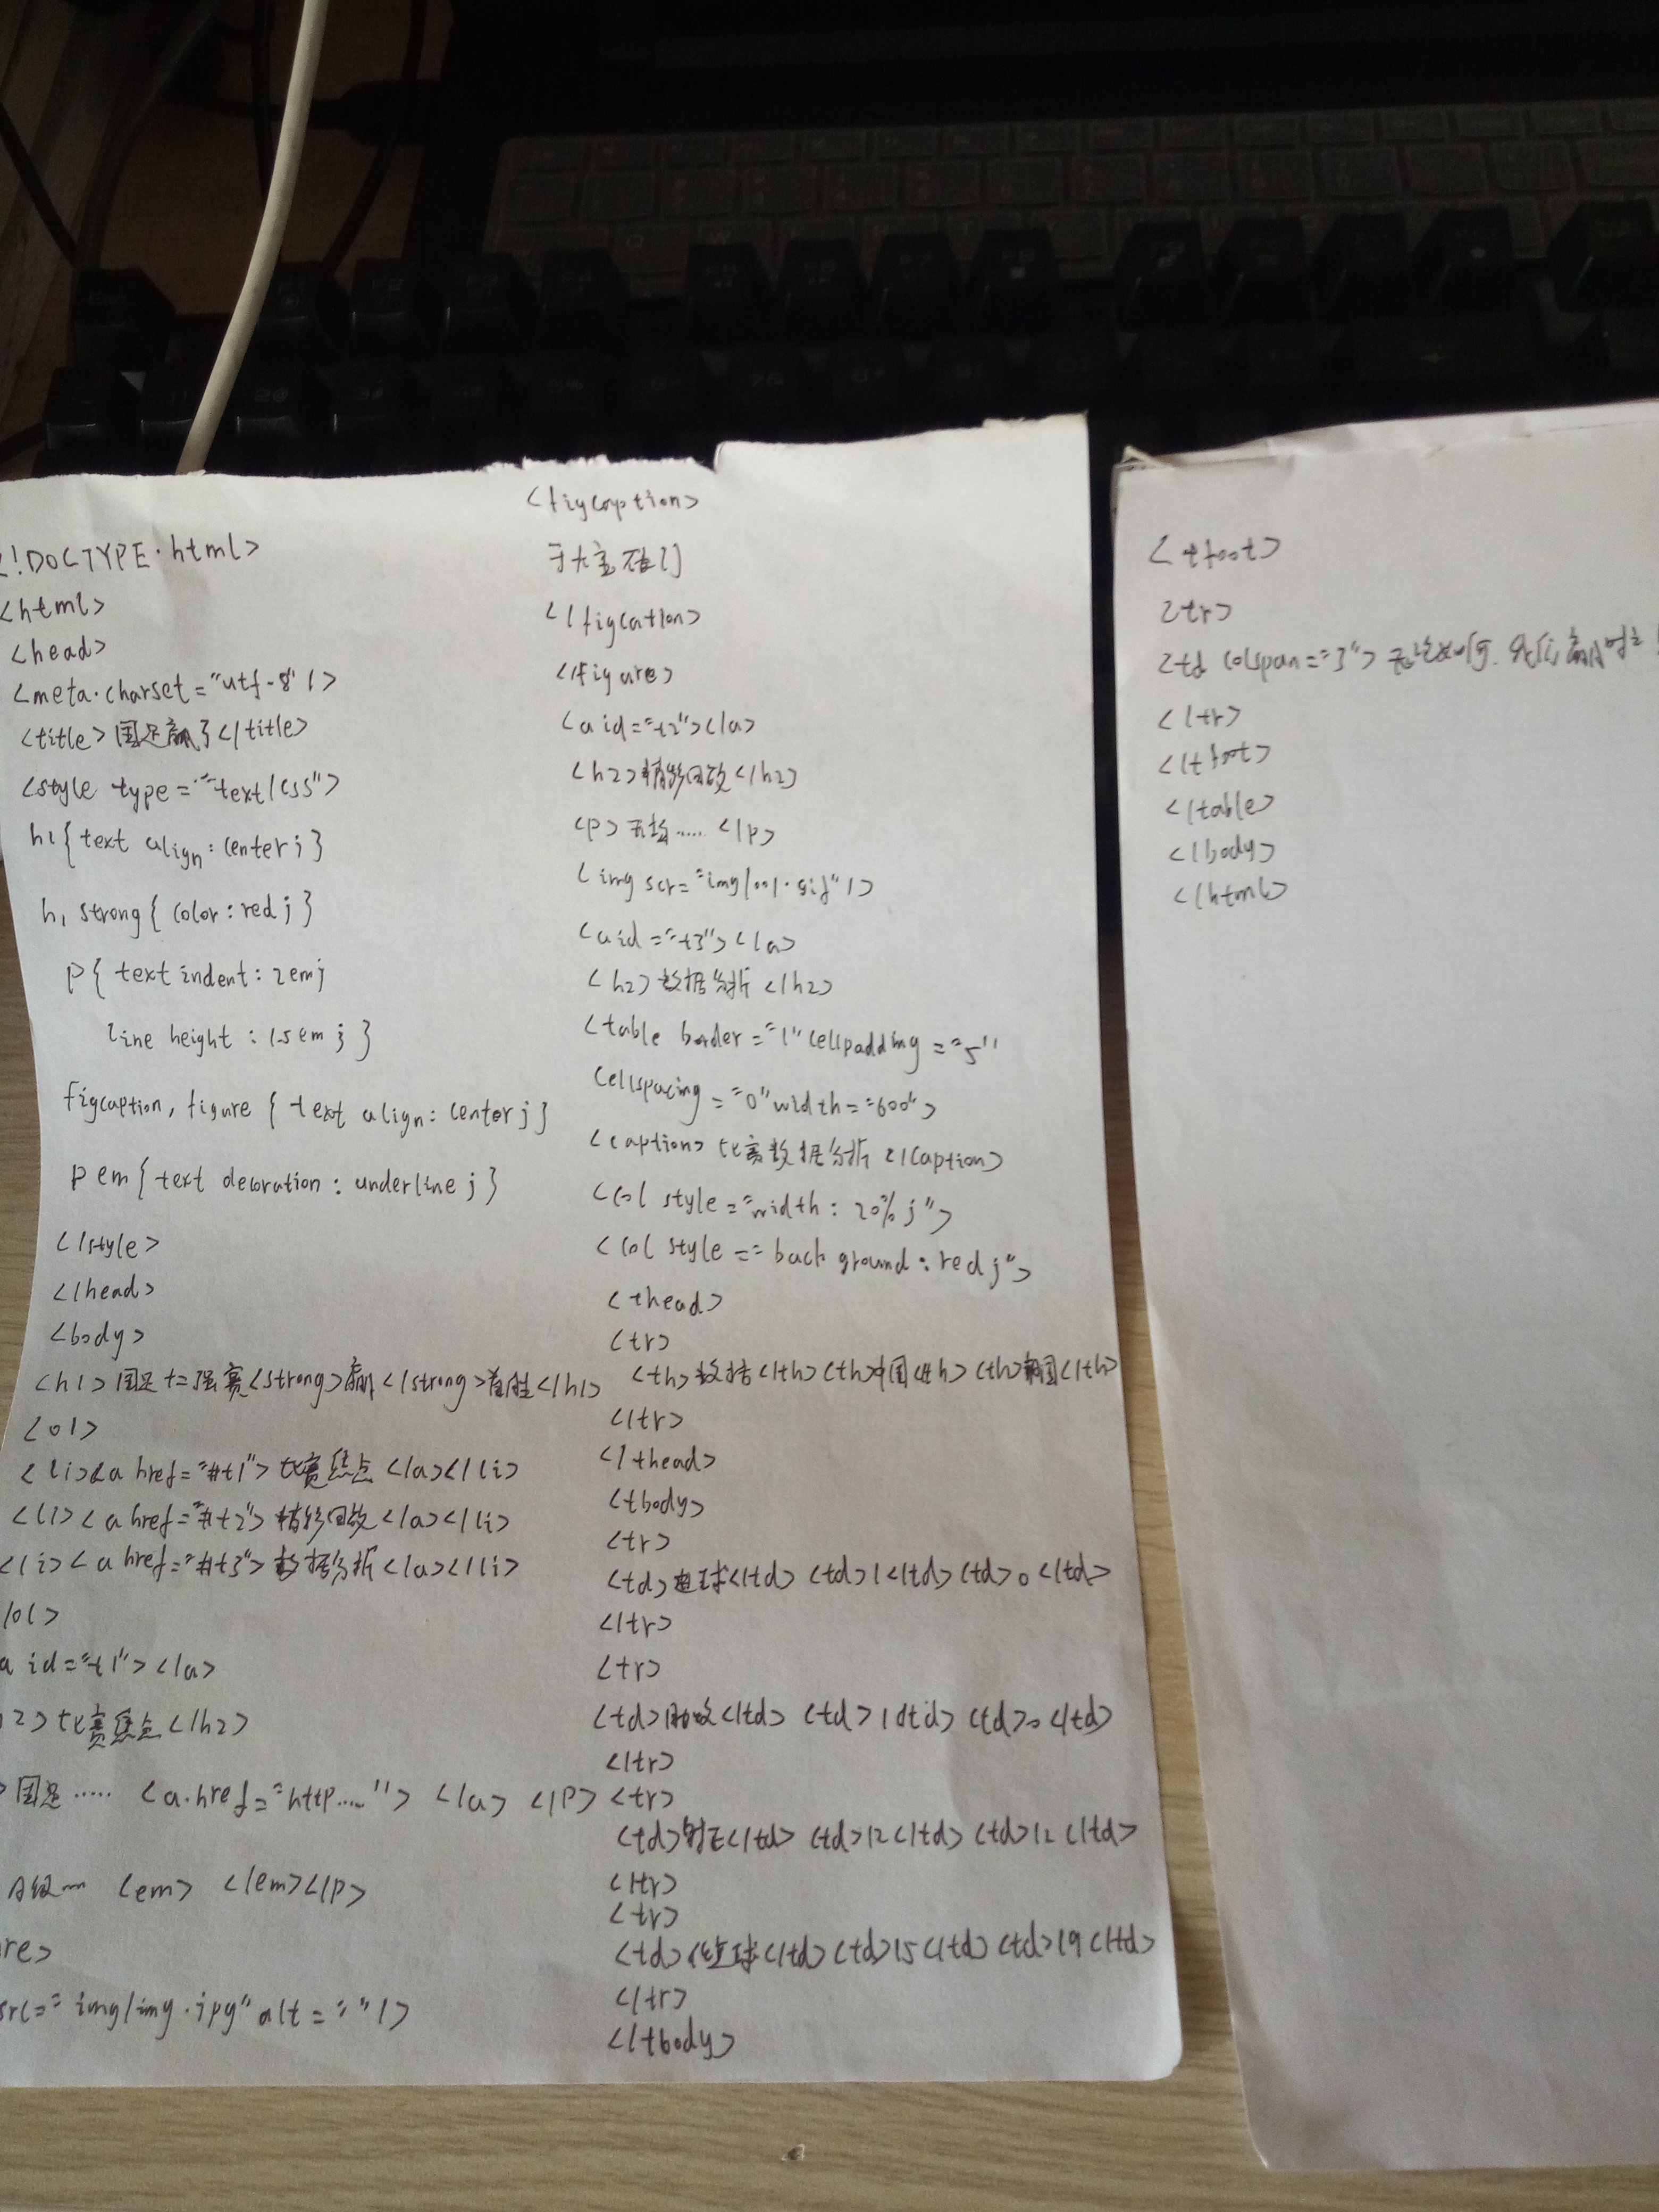 <!DOCTYPE html>
<html>
<head>
<meta charset="utf-8"/>
<title>国足赢了</title>
<style type="text/css">
h1{text align:center;}
h1 strong{color:red;}
p{text indent:2em;
line height:1.5em;}
figcaption, figure {text align:center;}
p em{text decoration:underline;}
</style>
</head>
<body>
<h1>国足十二强赛<strong>赢</strong>首胜</h1>
<ol>
<li><a href="#t1">比赛焦点</a></li>
<li><a href="#t2">精彩回放</a></li>
<li><a href="#t3">数据分析</a></li>
/ol>
a id="t1"></a>
2>比赛焦点</h2>
>国足…… <a href="http……"> </a> </p>
<em> </em></p>
re>
src="img/img.jpg" alt=" "/>
<figcaption>
于大宝破门
</figcation>
</figure>
<a id="t2"></a>
<h2>精彩回放</h2>
<p> …… </p>
<img scr="img/001.gif"/>
<a id="t3"></a>
<h2>数据分析</h2>
<table border="1" cellpadding="5"
cellspacing="0" width="600">
<caption>比赛数据分析</caption>
<col style="width:20%;">
<col style="back ground:red;">
<thead>
<tr>
<th>数据</th><th>中国</th><th>韩国</th>
</tr>
</thead>
<tbody>
<tr>
<td>进球</td> <td>1</td> <td>0</td>
</tr>
<tr>
<td>助攻</td> <td>1</td> <td>0</td>
</tr>
<tr>
<td>射正</td> <td>12</td> <td>12</td>
</tr>
<tr>
<td> 球</td><td>15</td><td>19</td>
</tr>
</tbody>
<tfoot>
<tr>
<td colspan="3">无论如何,
</tr>
</tfoot>
</table>
</body>
</html>